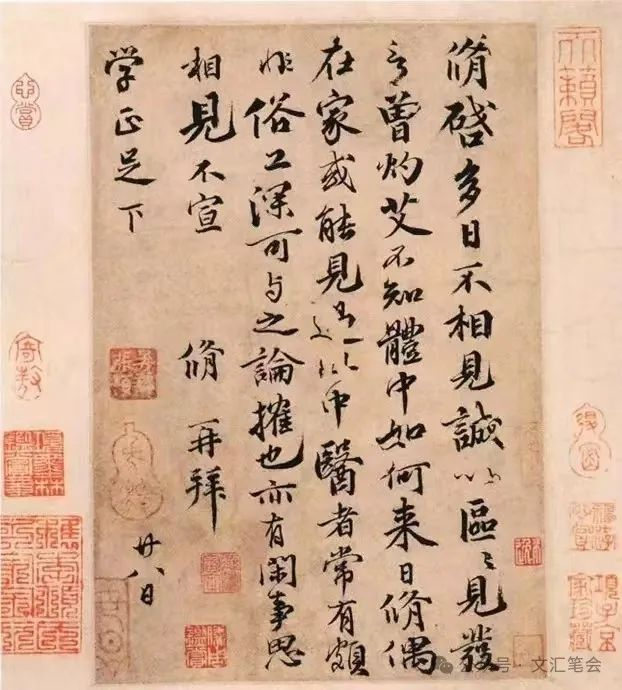 天籟閣
項子京家珍藏
脩啓多日不相見誠以區〻見發
言曾灼艾不知體中如何来日脩偶
在家或能見過此中醫者常有頗
非俗工深可与之論搉也亦有閑事思
相見不宣 脩再拜
廿八日
学正足下
心賞
公众号 · 文汇笔会